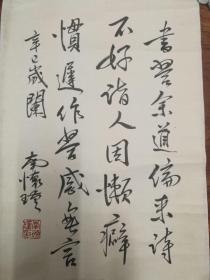 書余道偏來詩
不好詣人因懶癖
慣遲作答感無言
辛巳歲闌
南懷瑾